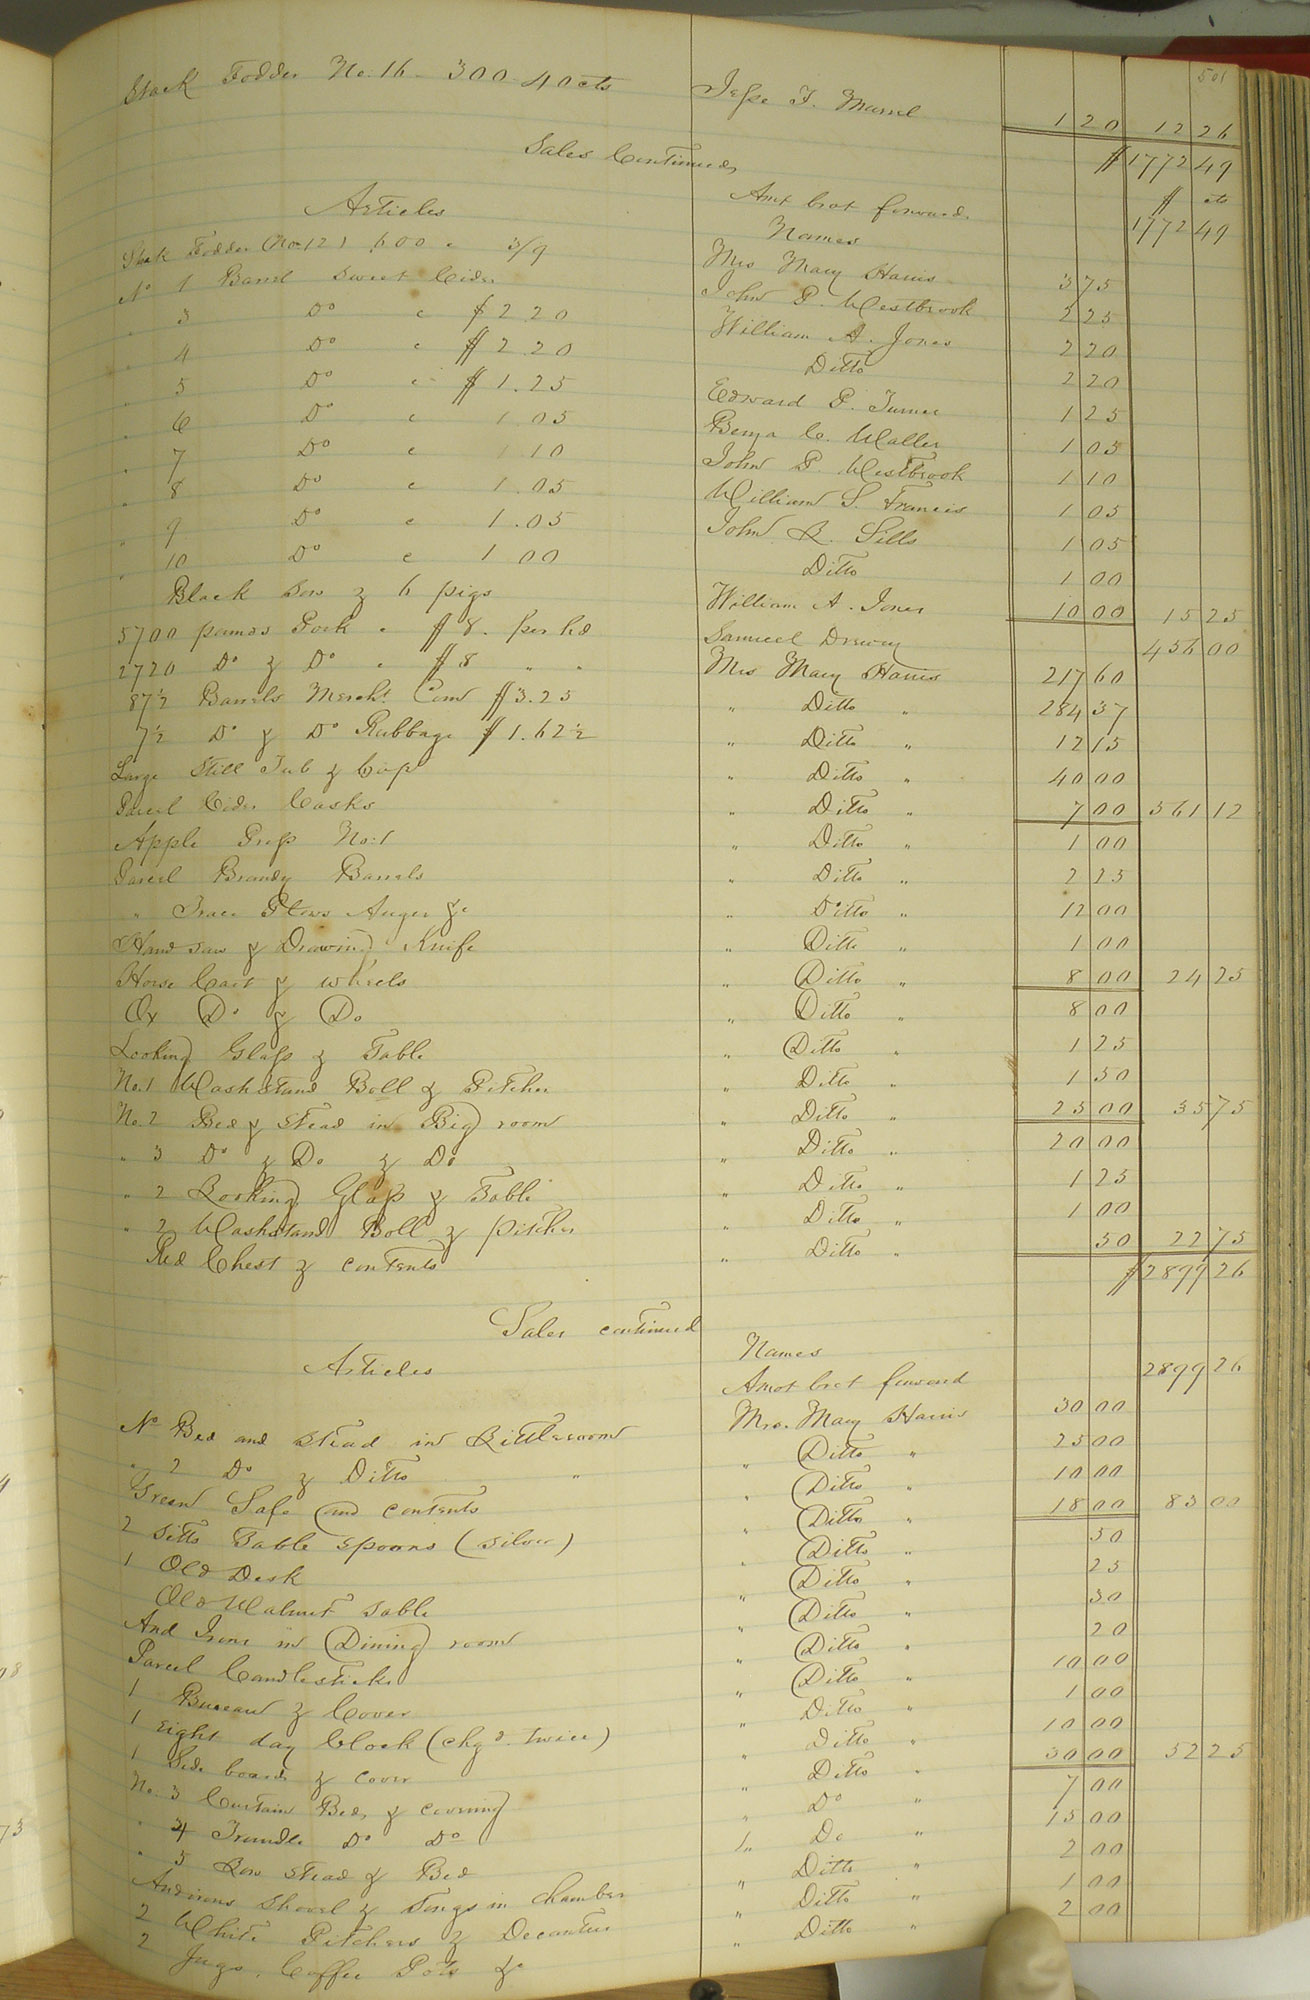 501
Stack Fodder No. 16 - 300. 40 cts Jesse F. Murrel 1 20 12 26
Sales Continued $1772 49
Amt brot forward. $ cts
Articles Names 1772 49
Stack Fodder (No 12) 600 " 3/9 Mrs Mary Harris 3 75
No 1 Barrel Sweet Cider John P. Westbrook 2 25
" 3 Do " $2.20 William A. Jones 2 20
" 4 Do " $2.20 Ditto 2 20
" 5 Do " $1.25 Edward P. Turner 1 25
" 6 Do " 1.05 Benja C. Waller 1 05
" 7 Do " 1 10 John P. Westbrook 1 10
" 8 Do " 1.05 William S. Francis 1 05
" 9 Do " 1.05 John R. Sills 1 05
" 10 Do " 1 00 Ditto 1 00
Black Sow & 6 pigs William A. Jones 10 00 15 25
5700 pounds Pork " $8. per hd Samuel Drewry 456 00
2720 Do & Do " $8 " " Mrs Mary Harris 217 60
87½ Barrels Mercht. Corn $3.25 " Ditto " 284 37
7½ Do & Do Rubbage $1.62½ " Ditto " 12 15
Large Still Tub & Cap " Ditto " 40 00
Parcel Cider Casks " Ditto " 7 00 561 12
Apple Press No: 1 " Ditto " 1 00
Parcel Brandy Barrels " Ditto " 2 25
" Trace Plows Auger &c " Ditto " 12 00
Hand saw & Drawing Knife " Ditto " 1 00
Horse Cart & wheels " Ditto " 8 00 24 25
Ox Do & Do " Ditto " 8 00
Looking Glass & Table " Ditto " 1 25
No. 1 Washstand Boll & Pitcher " Ditto " 1 50
No. 2 Bed & Stead in Big room " Ditto " 25 00 35 75
" 3 Do & Do & Do " Ditto " 20 00
" 2 Looking Glass & Table " Ditto " 1 25
" 2 Washstand Boll & pitcher " Ditto " 1 00
Red Chest & contents " Ditto " 50 22 75
$2899 26
Sales continued
Articles Names
Amot brot forward 2899 26
No Bed and stead in Little room Mrs. Mary Harris 30 00
" 2 Do & Ditto " " Ditto " 25 00
Green Safe and contents " Ditto " 10 00
2 Setts Table spoons (silver) " Ditto " 18 00 83 00
1 Old Desk " Ditto " 50
Old Walnut Table " Ditto " 25
And Irons in Dining room " Ditto " 30
Parcel Candlesticks " Ditto " 20
1 Bureau & Cover " Ditto " 10 00
1 Eight day Clock (chgd. twice) " Ditto " 1 00
1 Side board & cover " Ditto " 10 00
No. 3 Curtain Bed, & covering " Ditto " 30 00 52 25
" 4 Trundle Do Do " Do " 7 00
" 5 Low Stead & Bed " Do " 15 00
Andirons Shovel & Tongs in chamber " Ditto " 2 00
2 White Pitchers & Decanter " Ditto " 1 00
2 Jugs, Coffee Pots &c " Ditto " 2 00